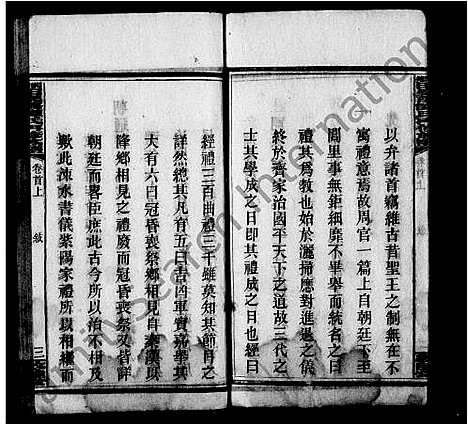 以弁諸首竊維古昔聖王之制無在不
寓禮意焉故周官一篇上自朝廷下至
閭里事無鉅細靡不畢舉而統名之曰
禮其為教也始於灑掃應對進退之儀
終於齊家治國平天下之道故三代之
士其學成之日即其禮成之日也經曰
經禮三百曲禮三千雖莫知其節目之
詳然總其凡有五曰吉凶軍賓嘉舉其
大有六曰冠昏喪祭鄉相見自秦漢以
降鄉相見之禮廢而冠昏喪祭又皆詳
朝廷而畧臣庶此古今所以治不相及
歟此涑水書儀紫陽家禮所以相繼而
卷首上
敍
三
卷首上
Unity Search International